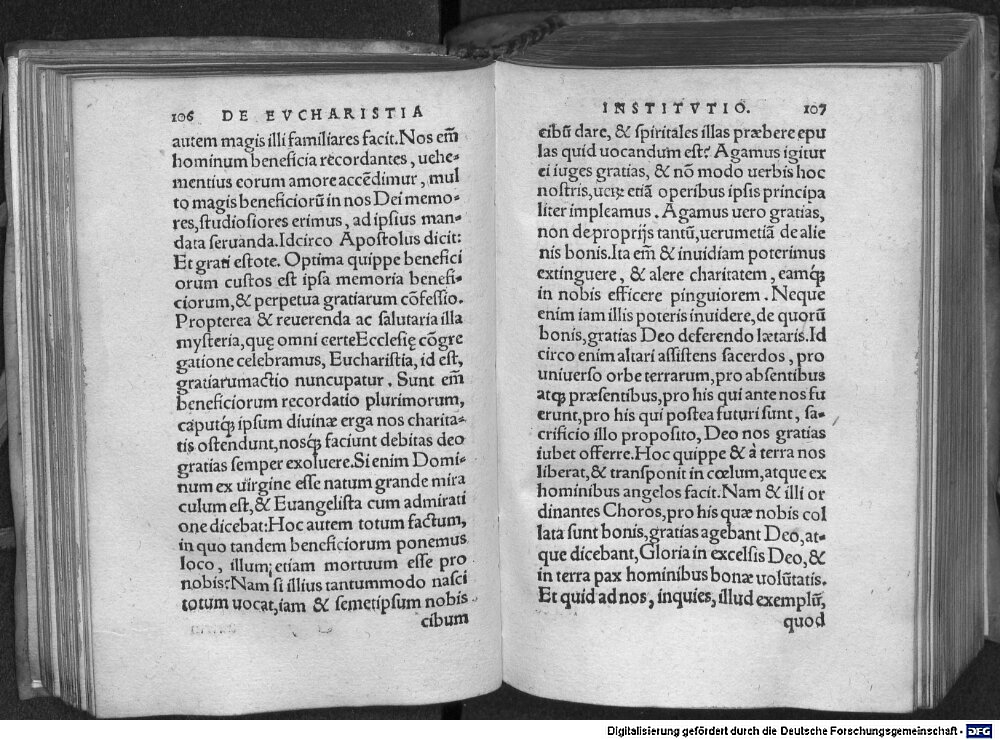 106 DE EVCHARISTIA
autem magis illi familiares facit. Nos em̃
hominum beneficia recordantes, uehe-
mentius eorum amore accẽdimur, mul
to magis beneficiorũ in nos Dei memo-
res, studiosiores erimus, ad ipsius man-
data seruanda. Idcirco Apostolus dicit:
Et grati estote. Optima quippe benefici
orum custos est ipsa memoria benefi-
ciorum, & perpetua gratiarum cõfessio.
Propterea & reuerenda ac salutaria illa
mysteria, quę omni certe Ecclesię cõgre
gatione celebramus, Eucharistia, id est,
gratiarumactio nuncupatur. Sunt em̃
beneficiorum recordatio plurimorum,
caputq́; ipsum diuinæ erga nos charita-
tis ostendunt, nosq́; faciunt debitas deo
gratias semper exoluere. Si enim Domi-
num ex uirgine esse natum grande mira
culum est, & Euangelista cum admirati
one dicebat: Hoc autem totum factum,
in quo tandem beneficiorum ponemus
loco, illum etiam mortuum esse pro
nobis? Nam si illius tantummodo nasci
totum uocat, iam & semetipsum nobis
cibum
INSTITVTIO. 107
cibũ dare, & spiritales illas præbere epu
las quid uocandum est? Agamus igitur
ei iuges gratias, & nõ modo uerbis hoc
nostris, uerꝫ etiã operibus ipsis principa
liter impleamus. Agamus uero gratias,
non de proprijs tantũ, uerumetiã de alie
nis bonis. Ita em̃ & inuidiam poterimus
extinguere, & alere charitatem, eamq́;
in nobis efficere pinguiorem. Neque
enim iam illis poteris inuidere, de quorũ
bonis, gratias Deo deferendo lætaris. Id
circo enim altari assistens sacerdos, pro
uniuerso orbe terrarum, pro absentibus
atq; præsentibus, pro his qui ante nos fu
erunt, pro his qui postea futuri sunt, sa-
crificio illo proposito, Deo nos gratias
iubet offerre. Hoc quippe & à terra nos
liberat, & transponit in cœlum, atque ex
hominibus angelos facit. Nam & illi or
dinantes Choros, pro his quæ nobis col
lata sunt bonis, gratias agebant Deo, at-
que dicebant, Gloria in excelsis Deo, &
in terra pax hominibus bonæ uolũtatis.
Et quid ad nos, inquies, illud exemplũ,
quod
Digitalisierung gefördert durch die Deutsche Forschungsgemeinschaft - DFG